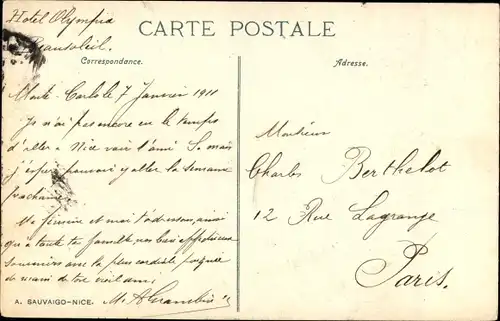 Hotel Olympia
Beausoleil.
CARTE POSTALE
Correspondance.
Adresse.
Monte-Carlo le 7 Janvier 1911
Je n'ai pas encore eu le temps
d'aller a Nice voir l'ami S. mais
j'espère pouvoir y aller la semaine
prochaine.
Ma femme et moi t'adressons, ainsi
qu'a toute ta famille nos bien affectueux
souvenirs avec la plus cordiale poignée
de main de ton vieil ami.
A. SAUVAIGO-NICE.
Monsieur
Charles Berthelot
12 Rue Lagrange
Paris.